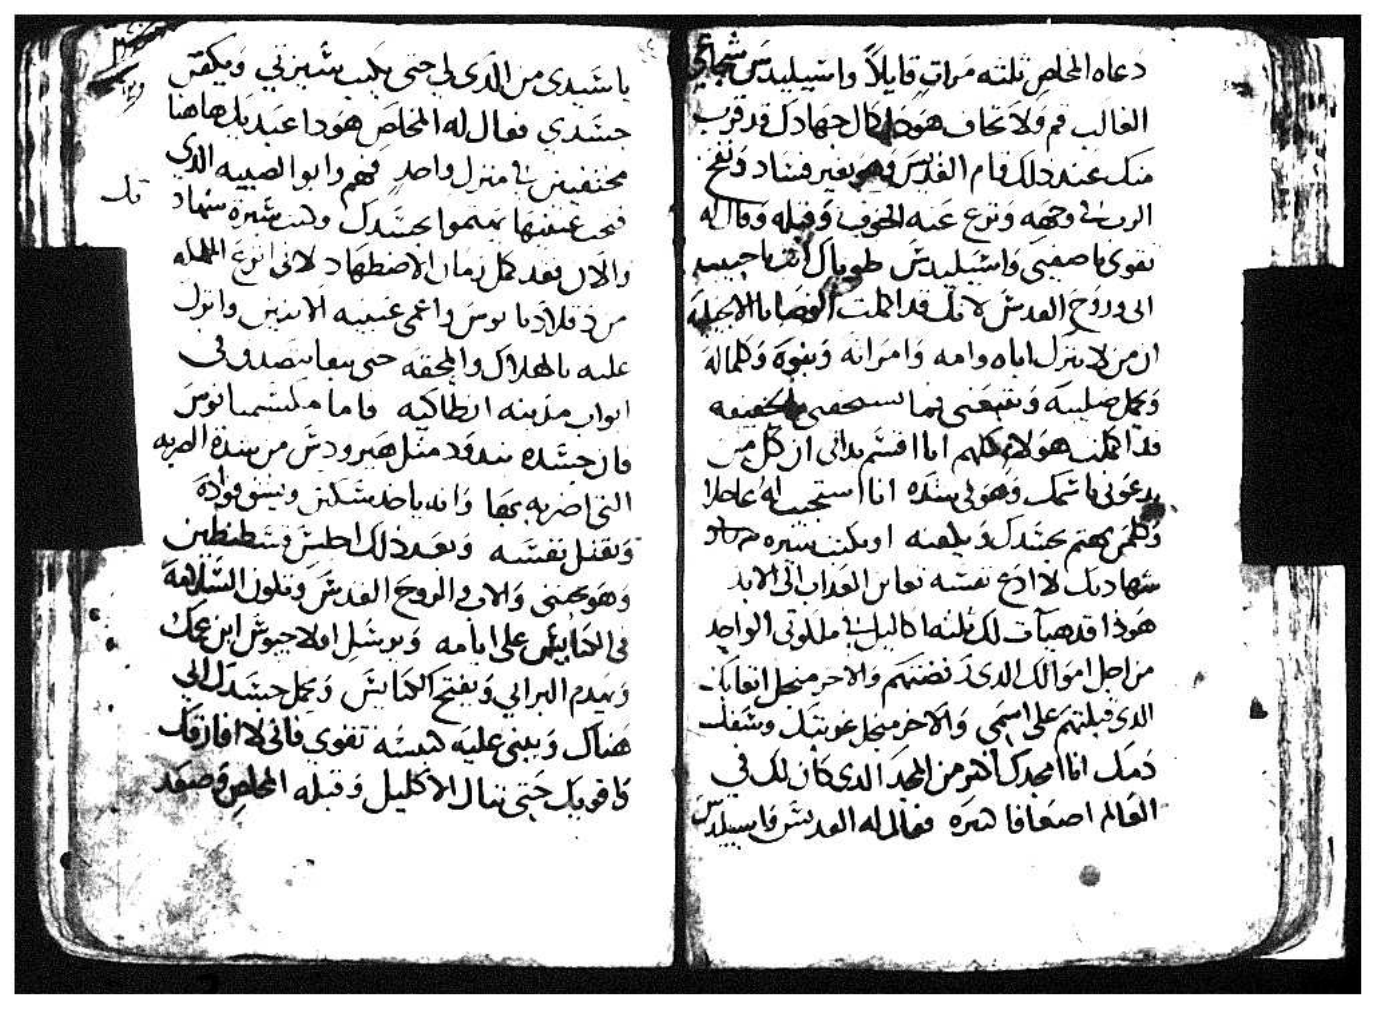 دعاه المخلص تلته مرات قايلاً واسيليدس شجاعي
الغالب قم ولا تخاف هودا كال جهادك قد قرب
منك عند دلك قام القديس وهو بغير فساد ونفخ
الرب في وجهه ونزع عنه الخوف وقبله وقال له
تقوى يا صفيي واسيليدس طوباك انت يا حبيب
ابي وروح القدس لانك قد اكملت الوصايا الانجيليه
ان من لا يترك اباه وامه وامراته وبنوه وكلما له
ويحمل صليبه ويتبعني فما يستحقني بالحقيقه
قد اكملت هولاء كلهم انا اقسم بداتي ان كل من
يدعوني باسمك وهو في شده انا استجيب له عاجلا
وكلمن يهتم بجسدك ويكفنه او يكتب سيره جهاد
شهادتك لا ادع نفسه تعاين العداب الى الابد
هودا قد هيات لك تلته اكاليل في ملكوتي الواحد
من اجل اموالك الدي رفضتهم والاخر منجل اتعابك
الدي قبلتهم على اسمي والاخر منجل غربتك وسفك
دمك انا امجدك اكتر من المجد الدي كان لك في
العالم اضعافا كتيره فقال له القديس واسيليدس
يا سيدي من الدي لي حتى يكتب سيرتي ويكفن
جسدي فقال له المخلص هودا عبديك هاهنا
مختفيين في منزل واحد فهم وابو الصبيه الدي
فتحت عينيها يهتموا بجسدك وكتب سيره شهاد
تك
والان بعد كمل زمان الاضطهاد لاني انزع المملكه
من دقلاديانوس واعمى عينيه الاتنين وانزل
عليه بالهلاك والمحقه حتى يبقا يتصدق في
ابواب مدينه انطاكيه فاما مكسيميانوس
فان جسده يدود متل هيرودس من شدة الضربه
التي اضربه بها وانه ياخد سكين ويشق فواده
ويقتل نفسه وبعد دلك اجلس قسطنطين
وهو يحبني والاب والروح القدس وتكون السلامه
في الكنايس على ايامه ويرسل اولا جيوش ابن عمك
ويهدم البرابي ويفتح الكنايس ويحمل جسدك الي
هناك ويبني عليه كنيسه تقوى فاني لا افارقك
واقويك حتى تنال الاكليل وقبله المخلص وصعد